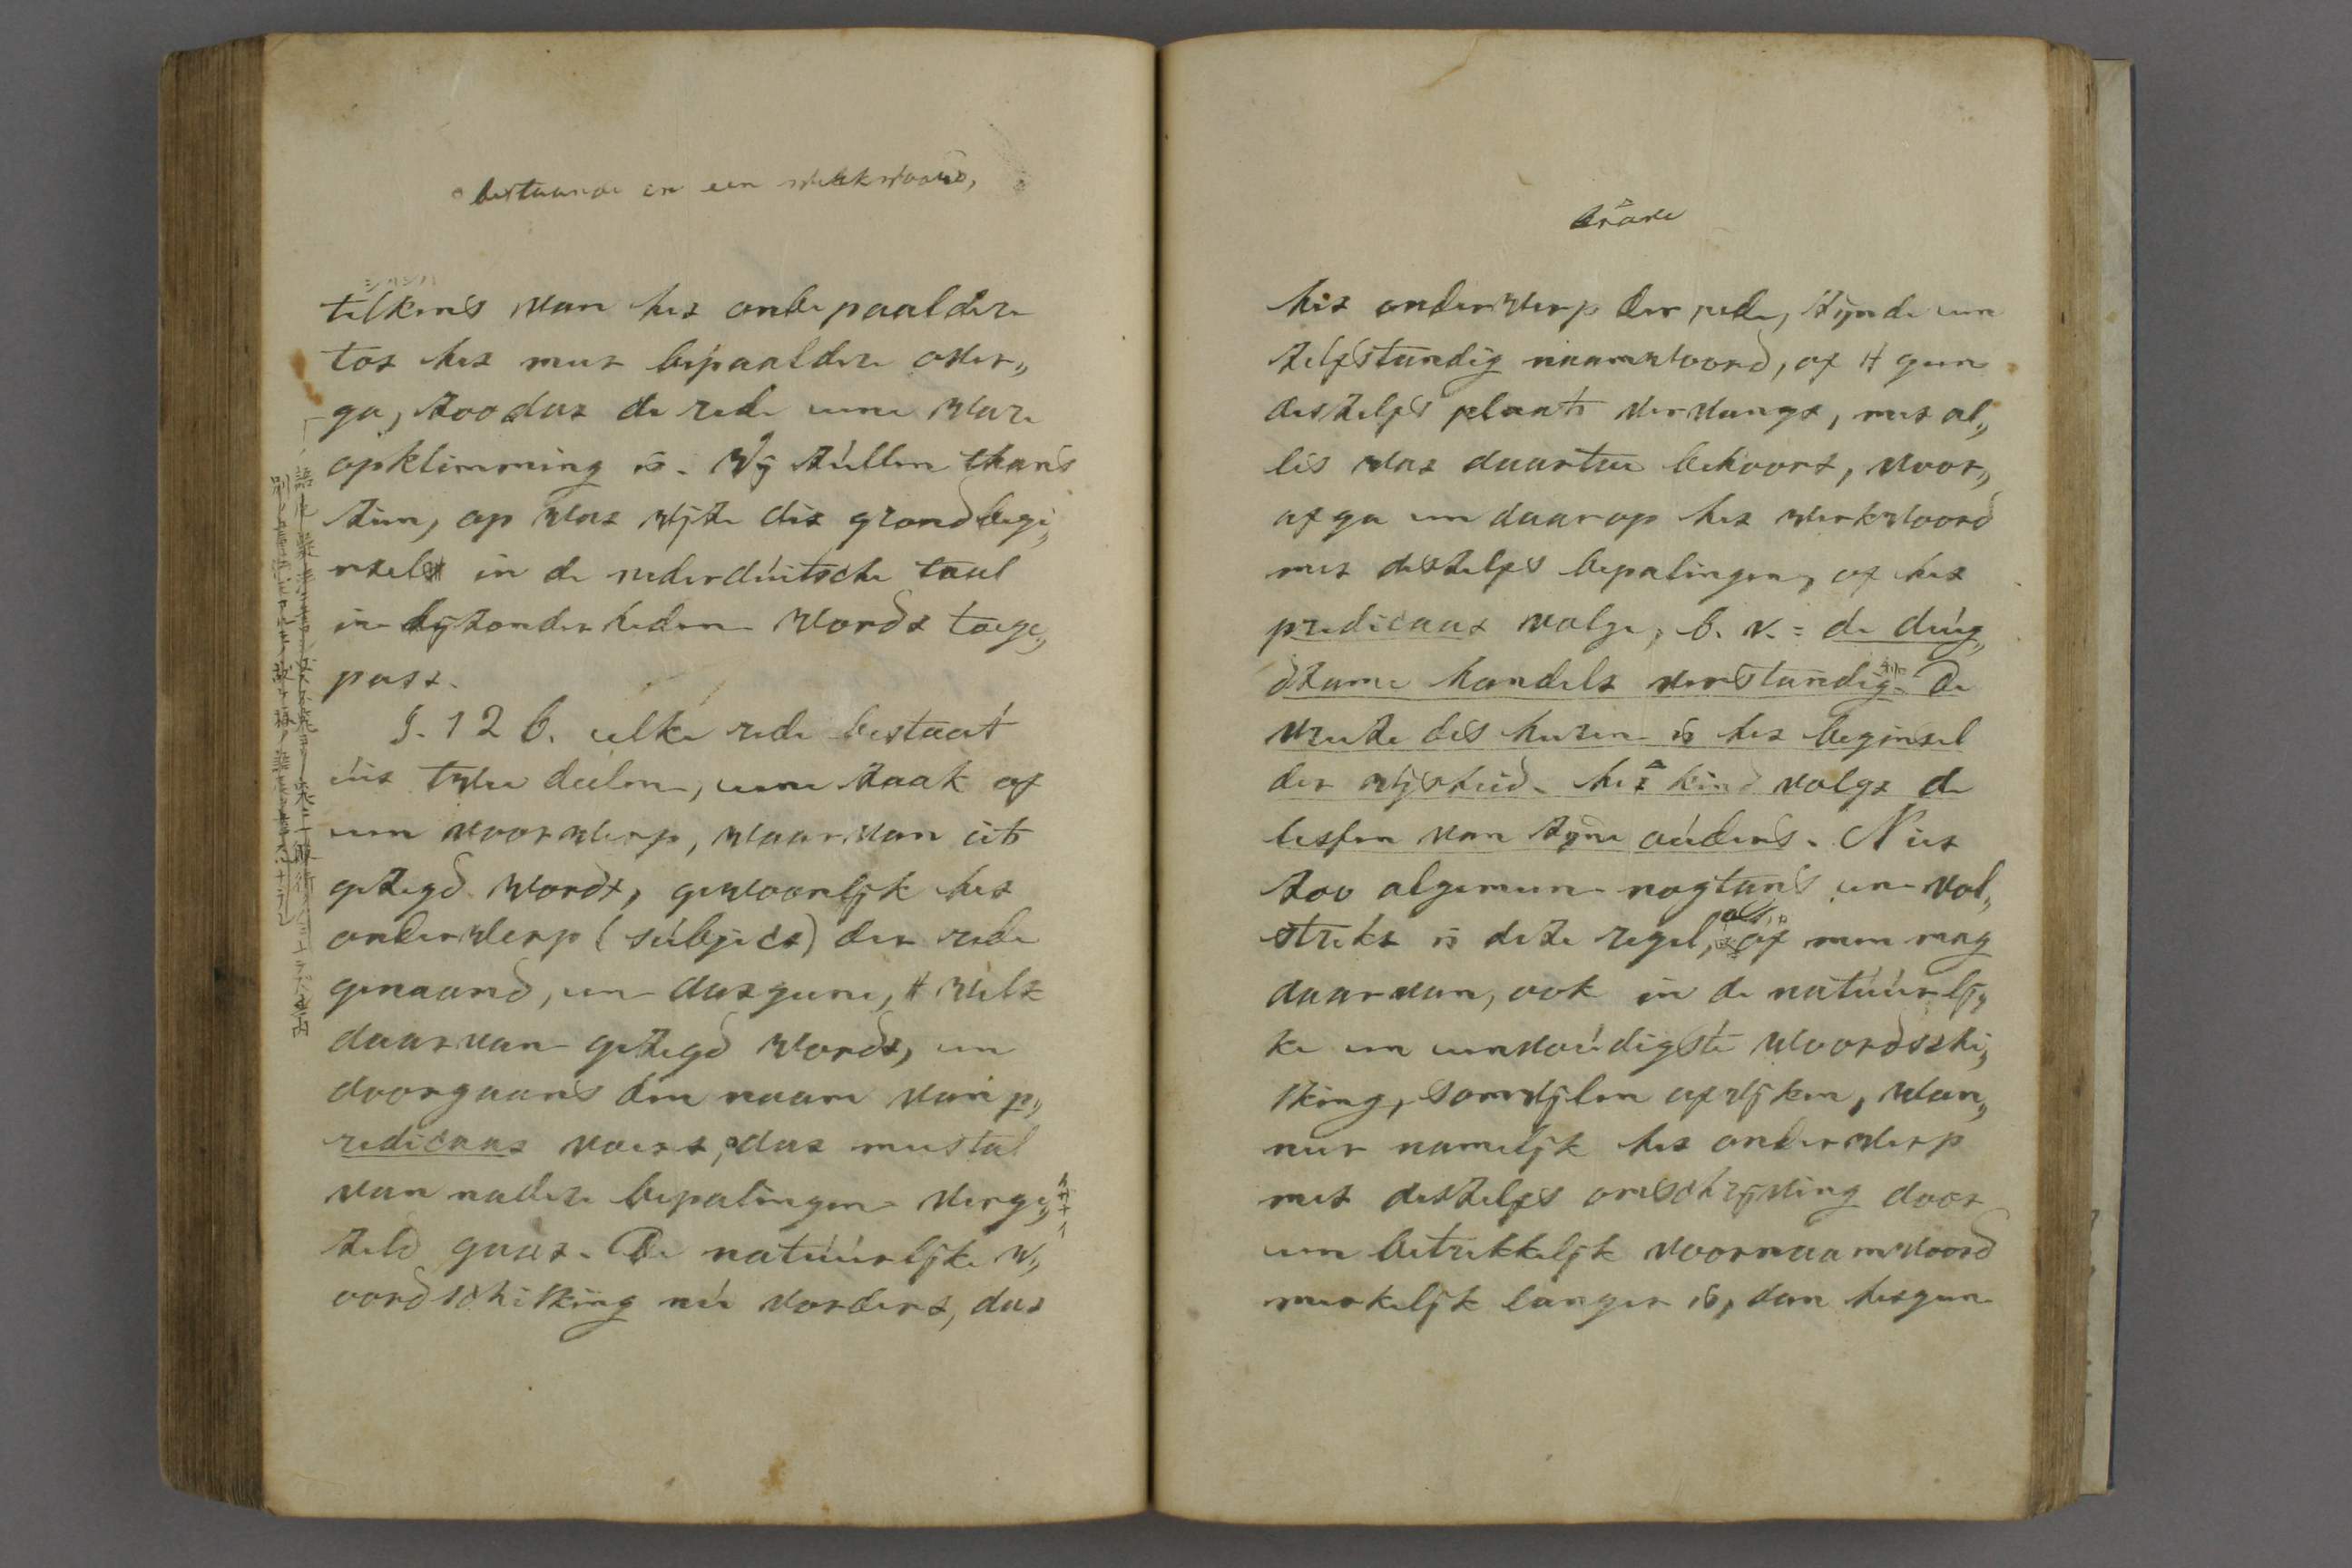 bestaande in een werkwoord,
telkens van het onbepaaldere
tot het meer bepaaldere over„
ga, zoo dat de rede eene ware
opklimming is. Wij zúllen thans
zien, op wat wijze dit grondbegi„
nsel in de nederdúitsche taal
in bijzonderheden wordt toege„
past.
§. 126. elke rede bestaat
úit twee deelen, eene zaak of
een voorwerp, waarvan iets
gezegd wordt, gewoonlijk het
onderwerp (súbject) der rede
genaamd, en datgeene, 't welk
daarvan gezegd wordt, en
doorgaans den naam van p„
redicaat voert, dat meestal
van nadere bepalingen verge„
zeld gaat. De natúúrlijke w„
oordschikking nú vordert, dat
het onderwerp der rede, zijnde een
zelfstandig naamwoord, of 't geen
deszelfs plaats vervangt, met al„
les wat daartoe behoort, voor„
afga en daarop het werkwoord
met deszelfs bepalingen, of het
predicaat volge, b. v. = de deúg„
dzame handelt verstandig. De
vreeze des heeren is het beginsel
der wijsheid. het kind volgt de
lessen van zijne oúders. Niet
zoo algemeen nogtans en vol„
strekt is deze regel, of men mag
daarvan, ook in de natúúrlij„
ke en eenvoúdigste woordschi„
kking, somwijlen afwijken, wan„
neer namelijk het onderwerp
met deszelfs omschrijving door
een betrekkelijk voornaamwoord
merkelijk langer is, dan hetgeen